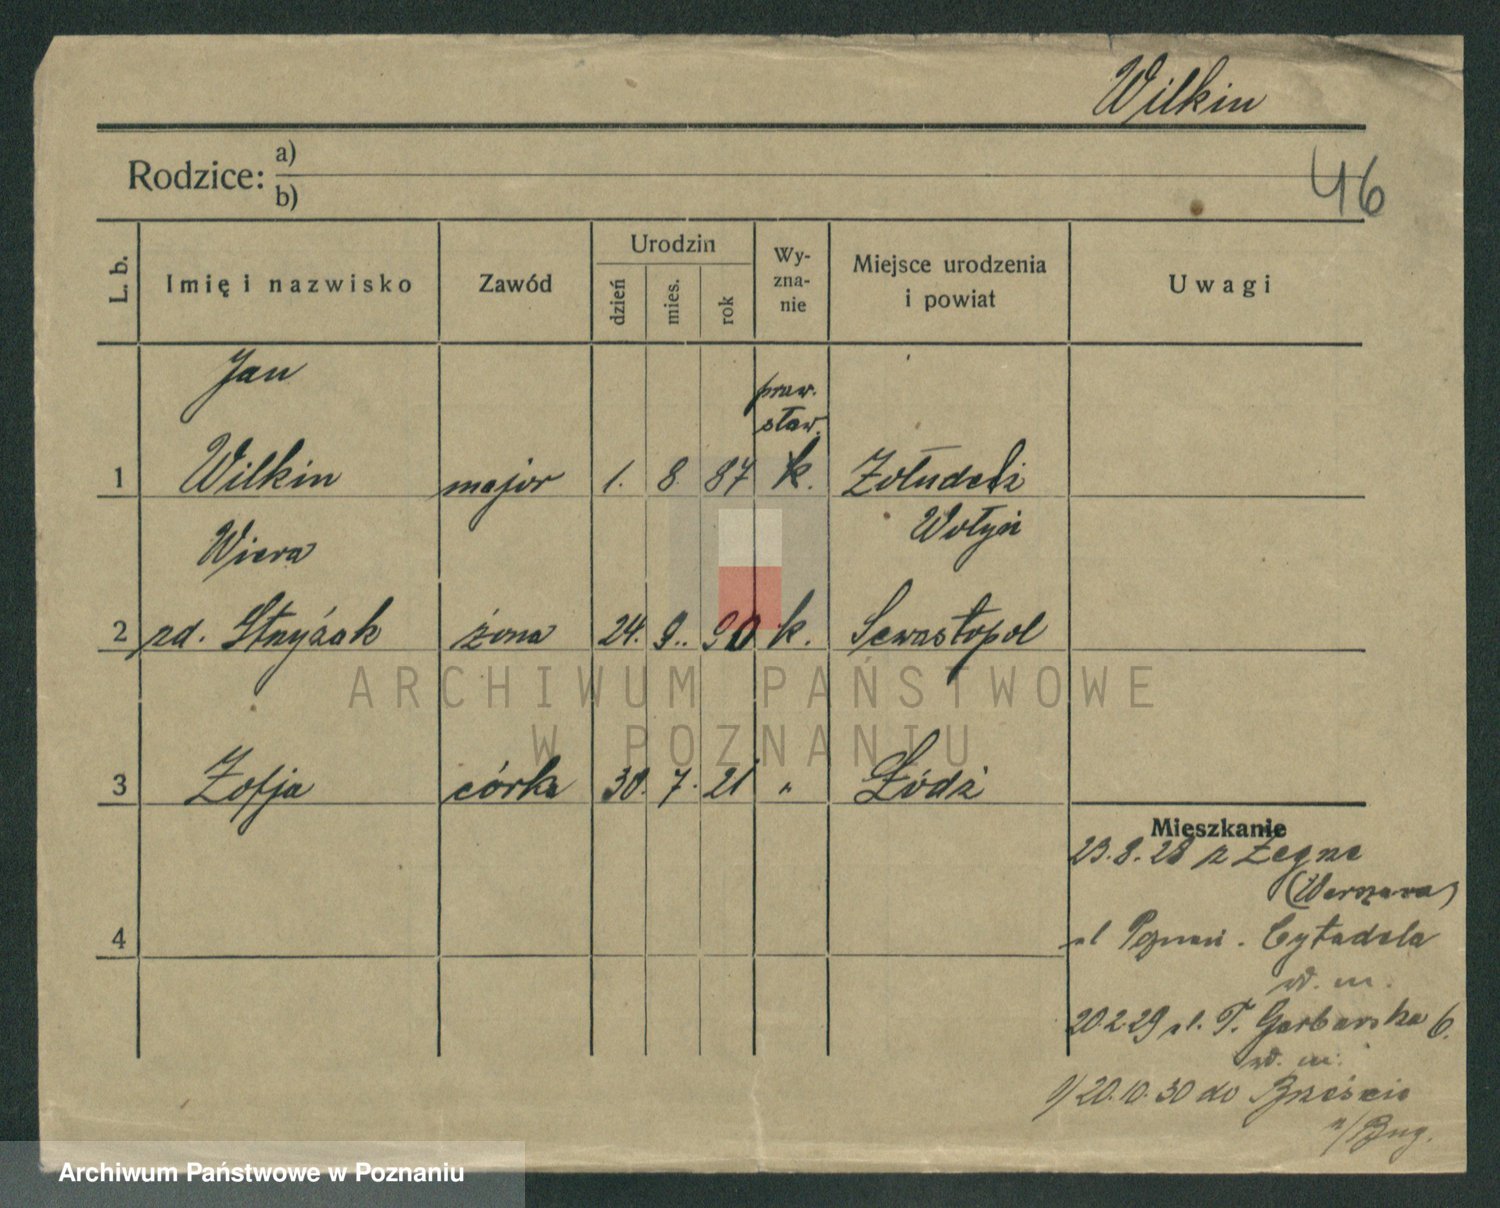 Wilkin
46
Rodzice: a)
b)
L. b. Imię i nazwisko Zawód Urodzin dzień mies. rok Wy-zna-nie Miejsce urodzenia i powiat Uwagi
Jan praw.
staw.
1 Wilkin major 1. 8. 87 k. Zołudek
Wołyń
Wiera
2 zd. żona 24. 9. 90 k. Sewastopol
3 Zofja córka 30. 7. 21 " Łódź
Mieszkanie
23.8.28 z Zegrze
(Warszawa)
Poznań. Cytadela
w. m.
20.2.29 Garbarska 6.
w. m.
20.10.30 do Brześcia
n/Bug.
4
ARCHIWUM PAŃSTWOWE
W POZNANIU
Archiwum Państwowe w Poznaniu